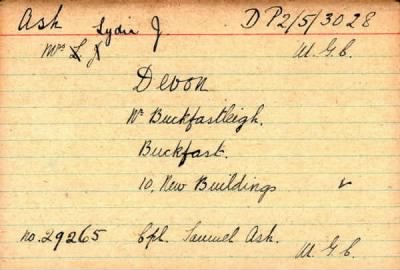 Ask Lydia J. DP2/5/3028
Mrs L J M.G.C.
Devon
Nr Buckfastleigh.
Buckfast.
10, New Buildings ✓
No. 29265 Cpl. Samuel Ash. M.G.C.